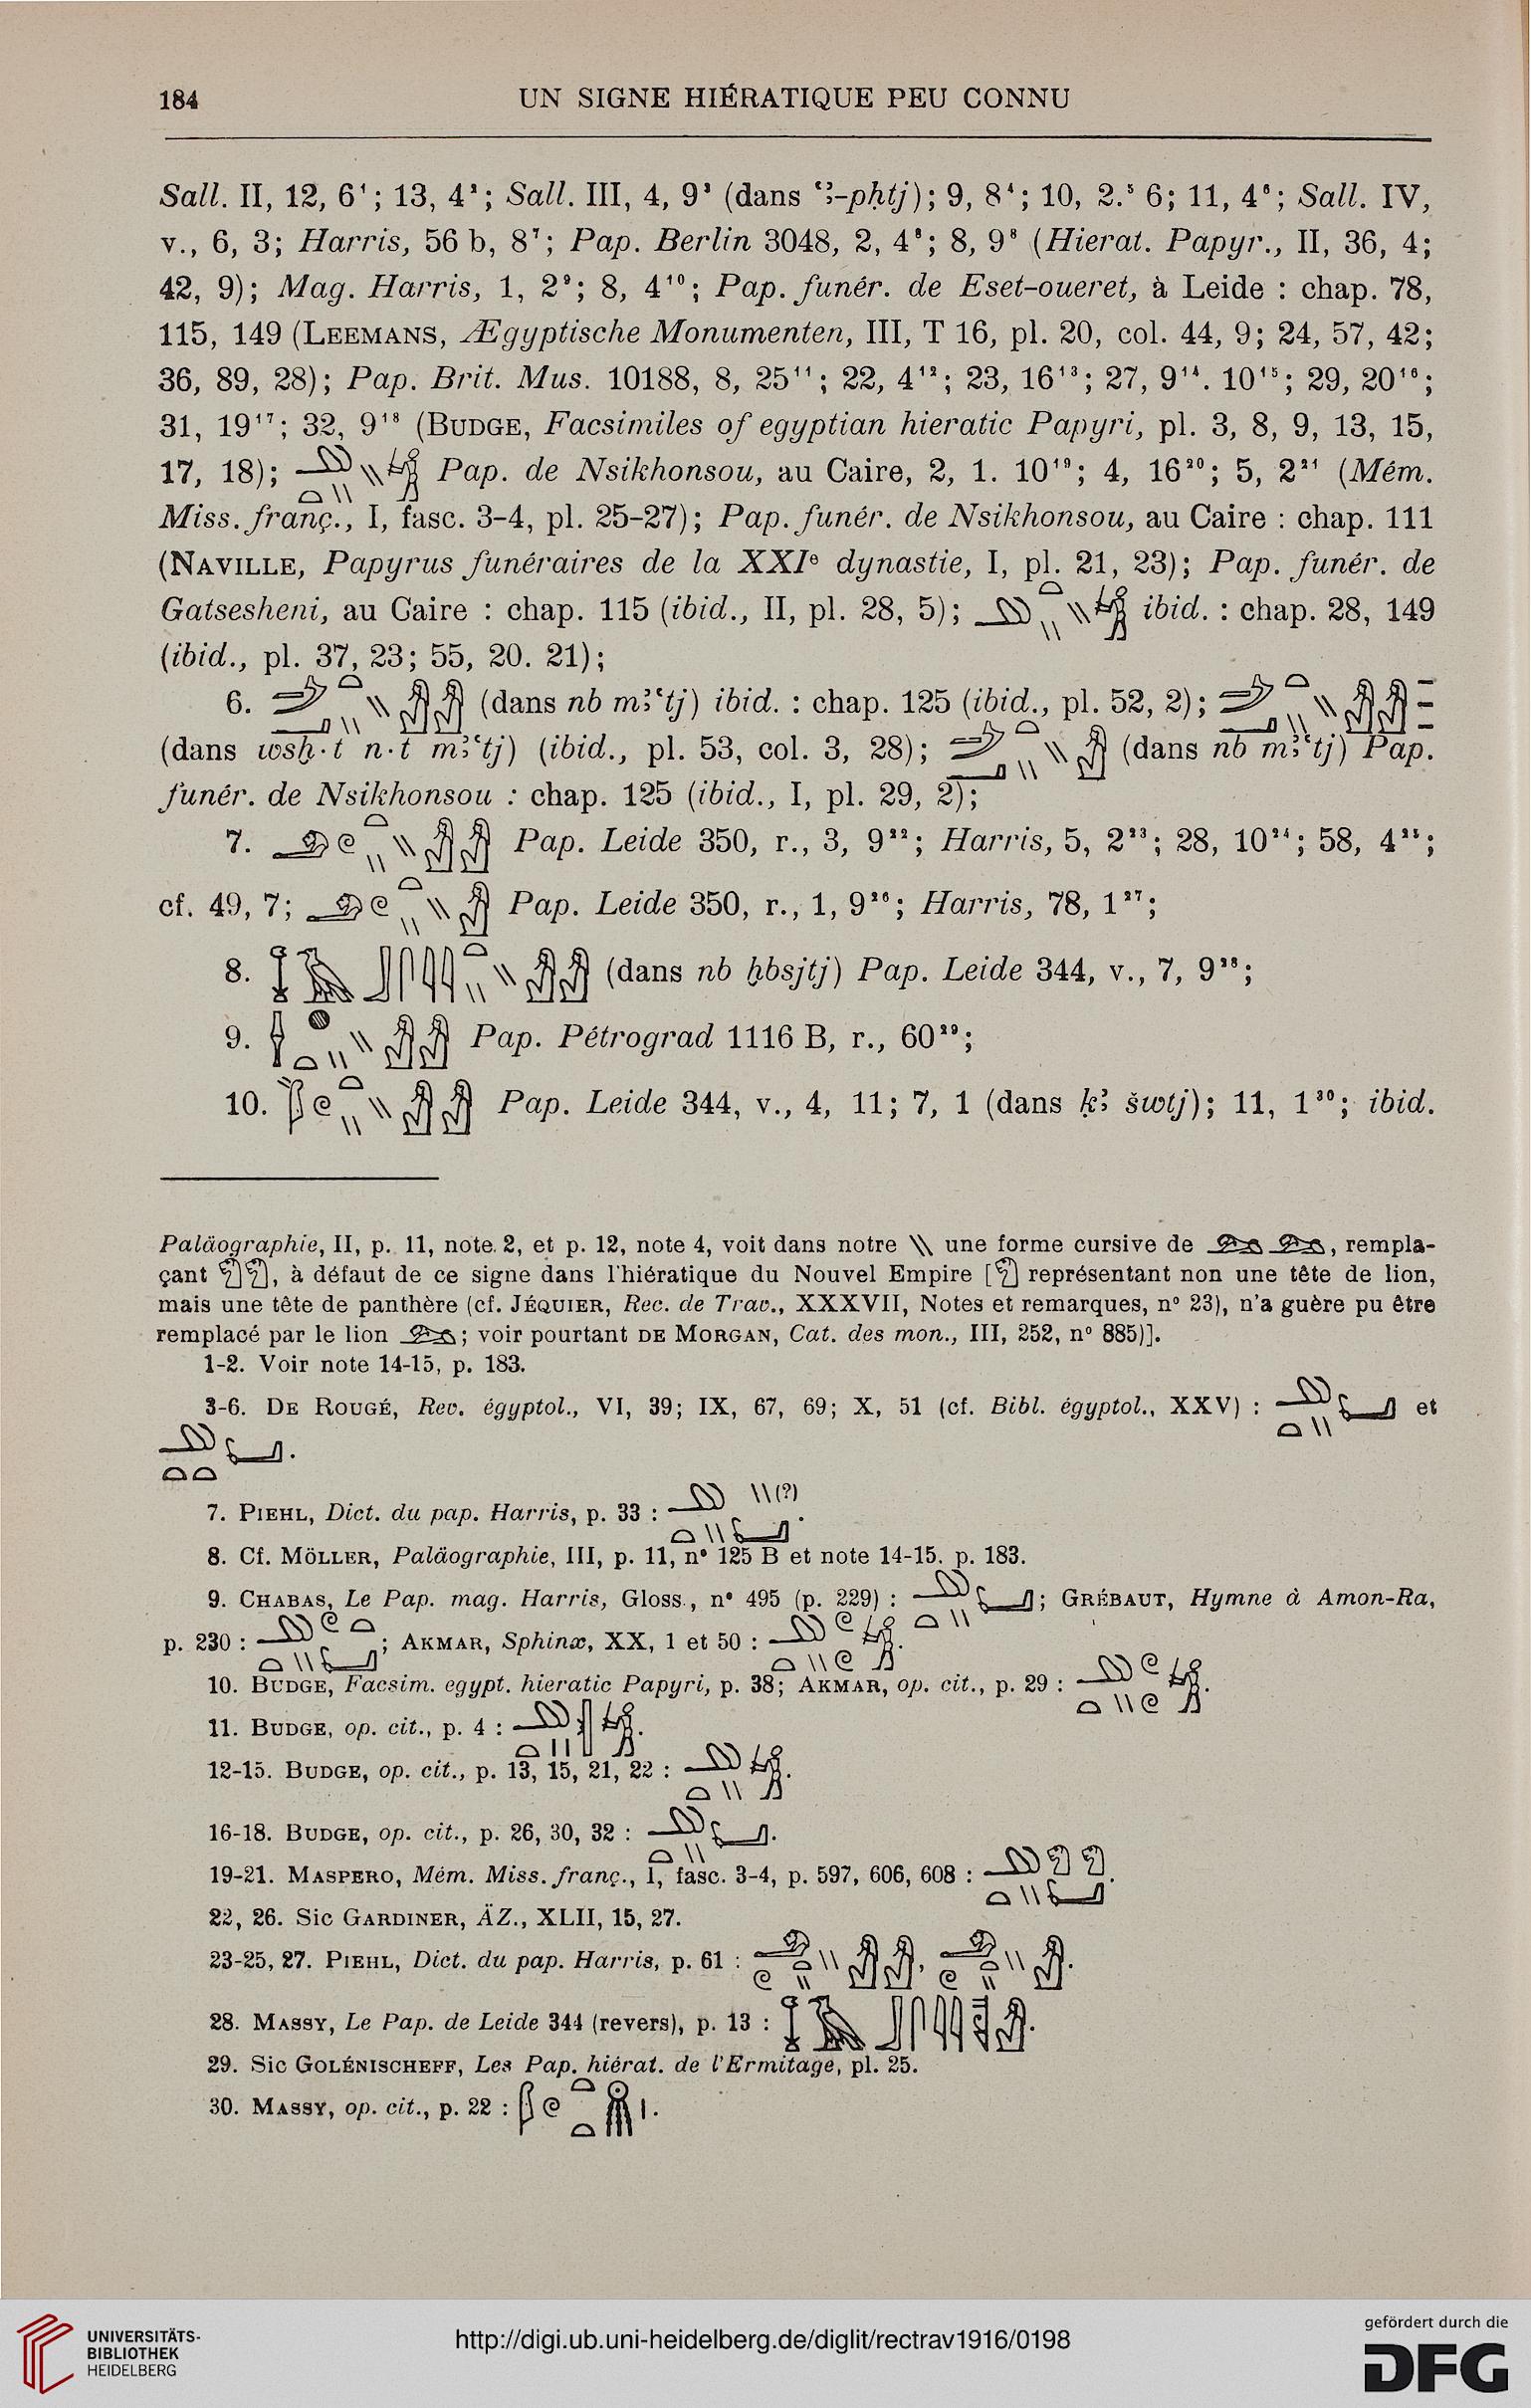 184 UN SIGNE HIÉRATIQUE PEU CONNU
Sall. II, 12, 6¹; 13, 4²; Sall. III, 4, 9³ (dans ꜥꜣ-pḥtj); 9, 8⁴; 10, 2.⁵ 6; 11, 4⁶; Sall. IV,
v., 6, 3; Harris, 56 b, 8⁷; Pap. Berlin 3048, 2, 4⁸; 8, 9⁸ (Hierat. Papyr., II, 36, 4;
42, 9); Mag. Harris, 1, 2⁹; 8, 4¹⁰; Pap. funér. de Eset-oueret, à Leide : chap. 78,
115, 149 (LEEMANS, Ægyptische Monumenten, III, T 16, pl. 20, col. 44, 9; 24, 57, 42;
36, 89, 28); Pap. Brit. Mus. 10188, 8, 25¹¹; 22, 4¹²; 23, 16¹³; 27, 9¹⁴. 10¹⁵; 29, 20¹⁶;
31, 19¹⁷; 32, 9¹⁸ (BUDGE, Facsimiles of egyptian hieratic Papyri, pl. 3, 8, 9, 13, 15,
17, 18); Pap. de Nsikhonsou, au Caire, 2, 1. 10¹⁹; 4, 16²⁰; 5, 2²¹ (Mém.
Miss. franç., I, fasc. 3-4, pl. 25-27); Pap. funér. de Nsikhonsou, au Caire : chap. 111
(NAVILLE, Papyrus funéraires de la XXIᵉ dynastie, I, pl. 21, 23); Pap. funér. de
Gatsesheni, au Caire : chap. 115 (ibid., II, pl. 28, 5); ibid. : chap. 28, 149
(ibid., pl. 37, 23; 55, 20. 21);
6. (dans nb mꜣꜥtj) ibid. : chap. 125 (ibid., pl. 52, 2);
(dans wsḫ·t n·t mꜣꜥtj) (ibid., pl. 53, col. 3, 28); (dans nb mꜣꜥtj) Pap.
funér. de Nsikhonsou : chap. 125 (ibid., I, pl. 29, 2);
7. Pap. Leide 350, r., 3, 9²²; Harris, 5, 2²³; 28, 10²⁴; 58, 4²⁵;
cf. 49, 7; Pap. Leide 350, r., 1, 9²⁶; Harris, 78, 1²⁷;
8. (dans nb ḥbsjtj) Pap. Leide 344, v., 7, 9²⁸;
9. Pap. Pétrograd 1116 B, r., 60²⁹;
10. Pap. Leide 344, v., 4, 11; 7, 1 (dans ḳꜣ šwtj); 11, 1³⁰; ibid.
Paläographie, II, p. 11, note 2, et p. 12, note 4, voit dans notre \\ une forme cursive de , rempla-
çant , à défaut de ce signe dans l'hiératique du Nouvel Empire [ représentant non une tête de lion,
mais une tête de panthère (cf. JÉQUIER, Rec. de Trav., XXXVII, Notes et remarques, n° 23), n'a guère pu être
remplacé par le lion ; voir pourtant DE MORGAN, Cat. des mon., III, 252, n° 885)].
1-2. Voir note 14-15, p. 183.
3-6. DE ROUGÉ, Rev. égyptol., VI, 39; IX, 67, 69; X, 51 (cf. Bibl. égyptol., XXV) : et
.
7. PIEHL, Dict. du pap. Harris, p. 33 : (?).
8. Cf. MÖLLER, Paläographie, III, p. 11, n° 125 B et note 14-15. p. 183.
9. CHABAS, Le Pap. mag. Harris, Gloss., n° 495 (p. 229) : ; GRÉBAUT, Hymne à Amon-Ra,
p. 230 : ; AKMAR, Sphinx, XX, 1 et 50 : .
10. BUDGE, Facsim. egypt. hieratic Papyri, p. 38; AKMAR, op. cit., p. 29 : .
11. BUDGE, op. cit., p. 4 : .
12-15. BUDGE, op. cit., p. 13, 15, 21, 22 : .
16-18. BUDGE, op. cit., p. 26, 30, 32 : .
19-21. MASPERO, Mém. Miss. franç., I, fasc. 3-4, p. 597, 606, 608 : .
22, 26. Sic GARDINER, ÄZ., XLII, 15, 27.
23-25, 27. PIEHL, Dict. du pap. Harris, p. 61 : , .
28. MASSY, Le Pap. de Leide 344 (revers), p. 13 : .
29. Sic GOLÉNISCHEFF, Les Pap. hiérat. de l'Ermitage, pl. 25.
30. MASSY, op. cit., p. 22 : .
UNIVERSITÄTS-
BIBLIOTHEK
HEIDELBERG
http://digi.ub.uni-heidelberg.de/diglit/rectrav1916/0198
gefördert durch die
DFG